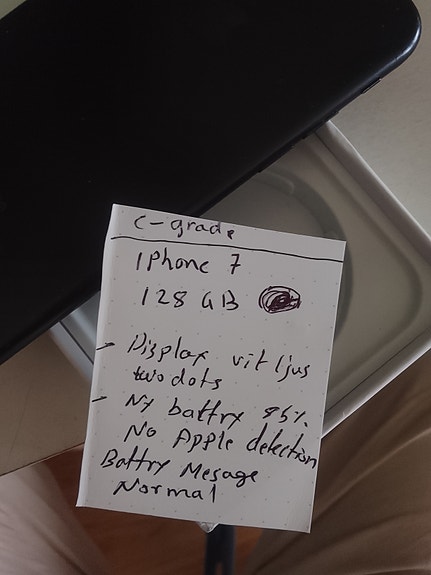 C-grade
iPhone 7
128 GB
- Display vit ljus
two dots
- Ny battry 85%
No Apple detection
Battry Mesage
Normal